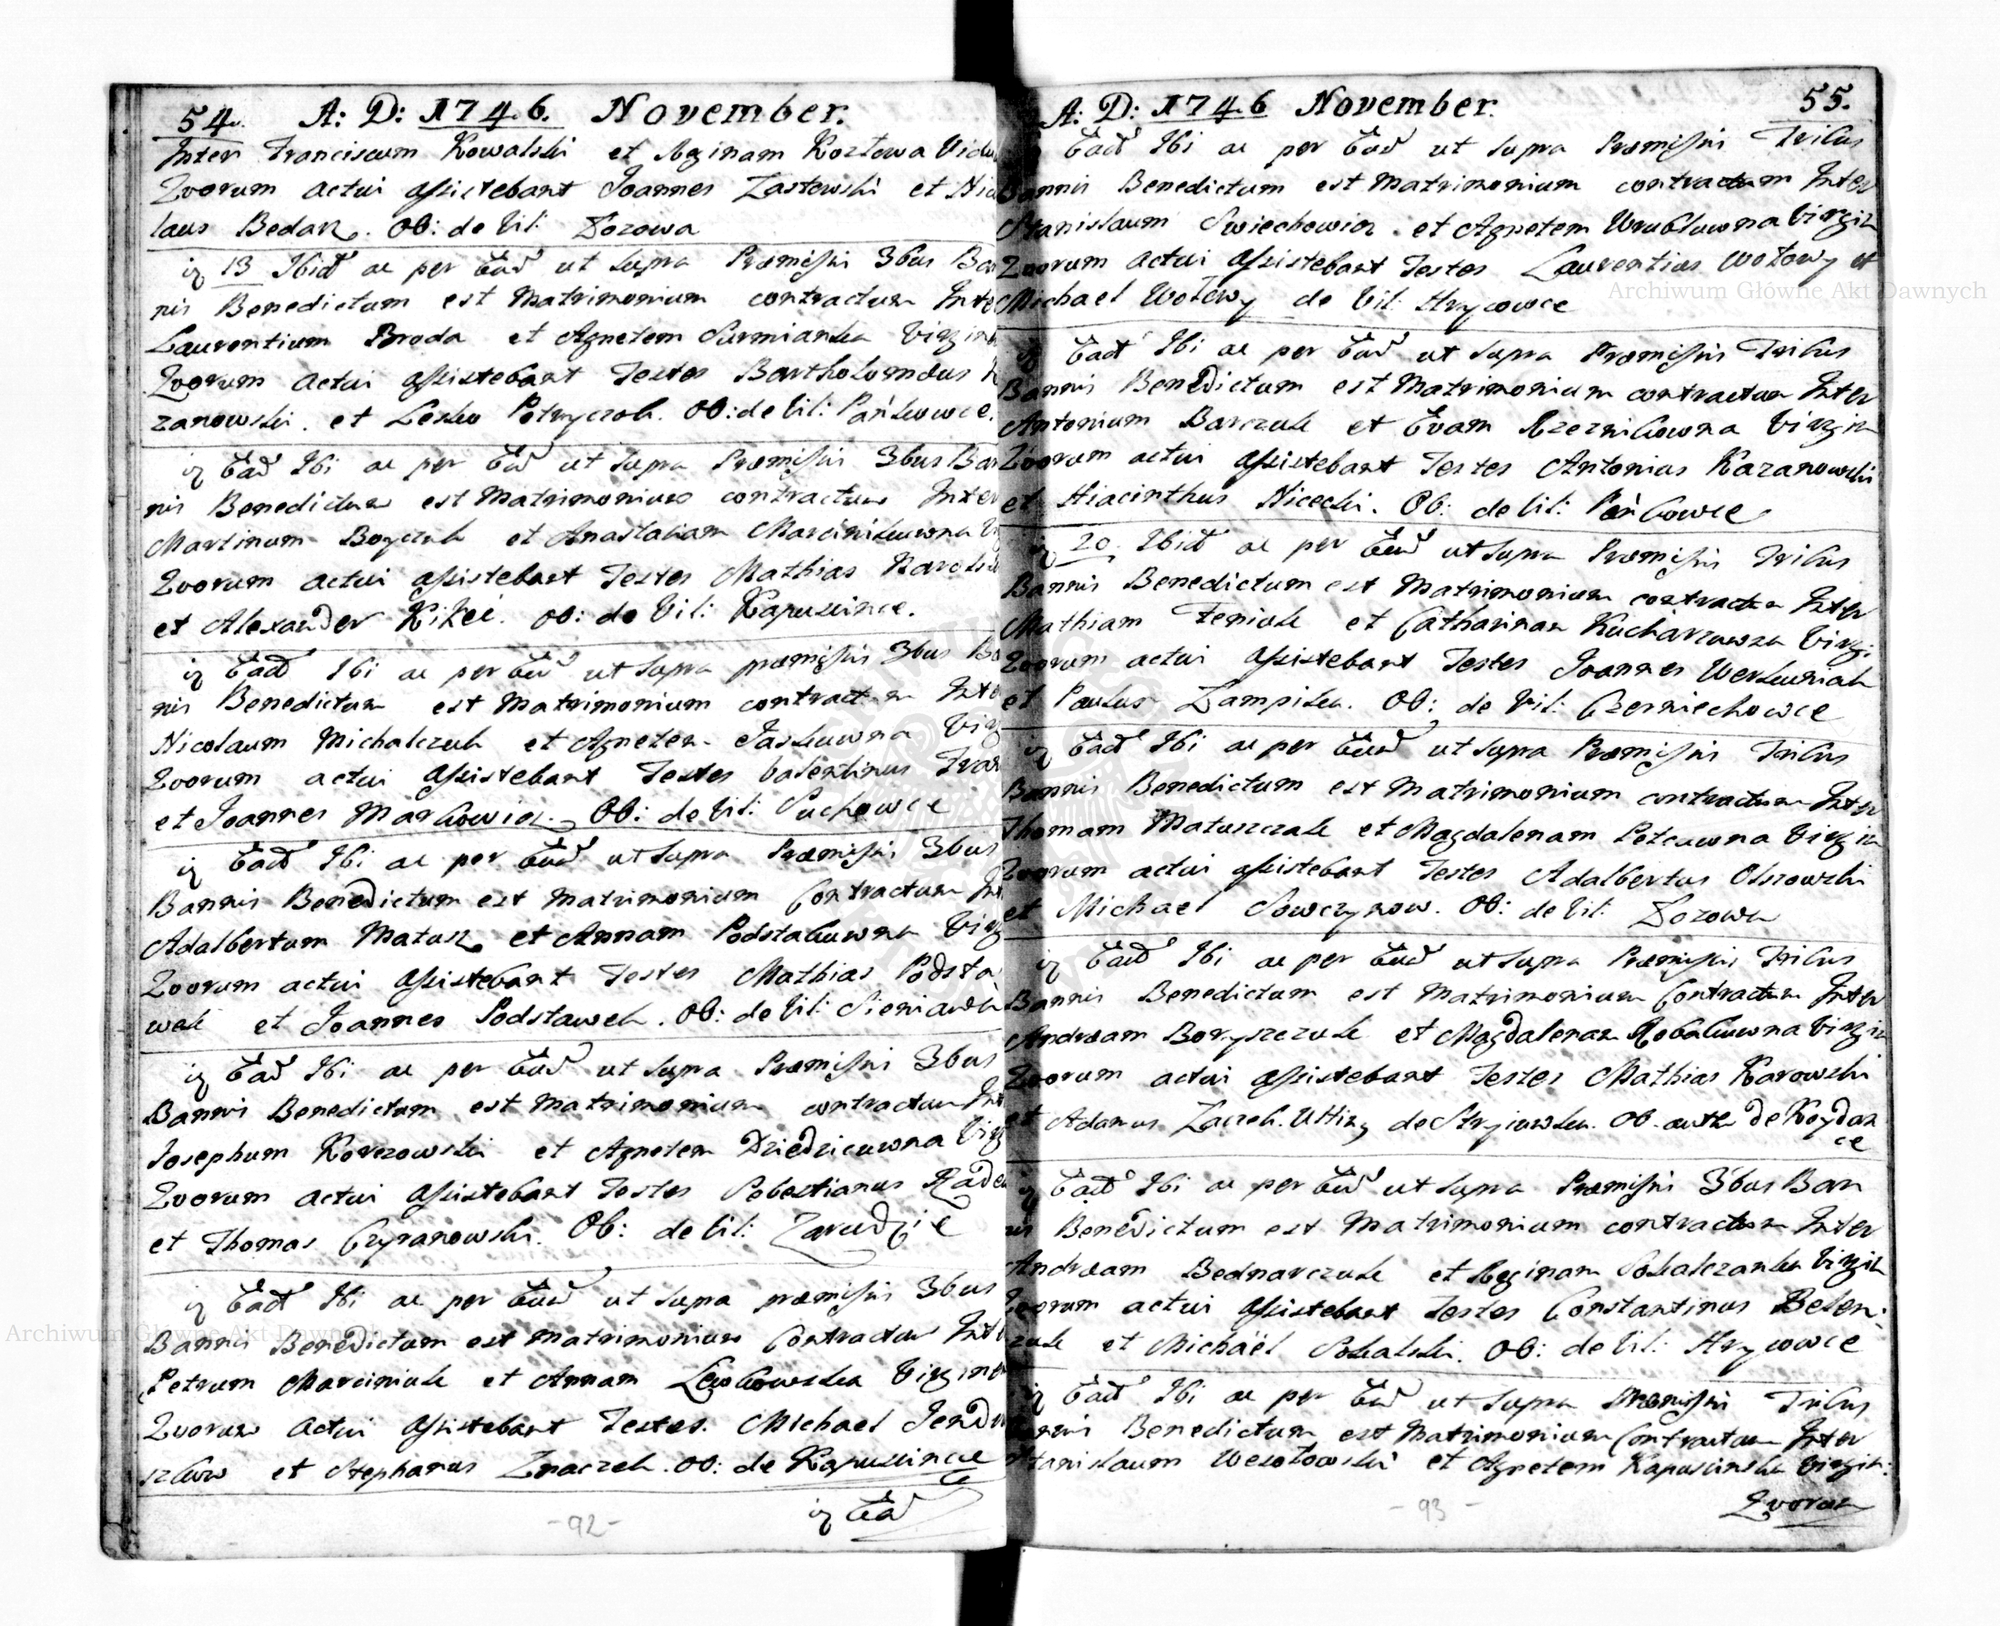 54. A: D: 1746. November.
Inter Franciscum Kowalski et Reginam Kozłowa Vidu
Quorum actui assistebant Joannes Zastowski et Nico
laus Bednarz. Ob: de Vil: Łozowa
13 Ibid ac per Eund ut supra Præmissis 3bus Ban
nis Benedictum est Matrimonium contractum Inter
Laurentium Broda et Agnetem Surmianka Virgin
Quorum actui assistebant Testes Bartholomæus K
zanowski et Lesko Petryczok. Ob: de Vil: Pańkowce.
Ead Ibi ac per Eund ut supra Præmissis 3bus Ban
nis Benedictum est Matrimonium contractum Inter
Martinum Boyczuk et Anastasiam Marcinikuwna
Quorum actui assistebant Testes Mathias
et Alexander Kikieć. Ob: de Vil: Kapuscince.
Ead Ibi ac per Eund ut supra præmissis 3bus Ba
nis Benedictum est Matrimonium contractum Inte
Nicolaum Michalczuk et Agnetem Jaskuwna Virg
Quorum actui assistebant Testes Valentinus
et Joannes Markowicz. Ob: de Vil: Suchowce
Ead Ibi ac per Eund ut supra Præmissis 3bus
Bannis Benedictum est Matrimonium Contractum Int
Adalbertum Matusz et Annam Podstakuwna Virg
Quorum actui assistebant Testes Mathias Podsta
wek et Joannes Podstawek. Ob: de Vil: Sieniawa
Ead Ibi ac per Eund ut supra Præmissis 3bus
Bannis Benedictum est Matrimonium contractum Int
Josephum Korczowski et Agnetem Dziedzicuwna Virg
Quorum actui assistebant Testes Sebestianus
et Thomas Cypranowski. Ob: de Vil: Zarudzie
Ead Ibi ac per Eund ut supra præmissis 3bus
Bannis Benedictum est Matrimonium Contractum Int
Petrum Marciniak et Annam Virgine
Quorum actui assistebant Testes. Michael
et Stephanus Znaczek. Ob: de Kapuscince
Ead
-92-
A: D: 1746 November. 55.
Ead Ibi ac per Eund ut supra Præmissis Tribus
Bannis Benedictum est Matrimonium contractum Inter
Stanislaum Swiechowicz et Agnetem Wrubluwna Virgin
Quorum actui assistebant Testes Laurentius Wołowy et
Michael Wołowy de Vil: Hrycowce
Ead Ibi ac per Eund ut supra Præmissis Tribus
Bannis Benedictum est Matrimonium contractum Inter
Antonium Barczuk et Evam Rzeznikowna Virgin
Quorum actui assistebant Testes Antonius Kazanowski
et Hiacinthus Nicecki. Ob: de Vil: Pańkowce
20. Ibid ac per Eund ut supra Præmissis Tribus
Bannis Benedictum est Matrimonium contractum Inter
Mathiam Feniuk et Catharinam Virgi:
Quorum actui assistebant Testes Joannes Werkuniak
et Paulus Zampilka. Ob: de Vil: Czerniechowce
Ead Ibi ac per Eund ut supra Præmissis Tribus
Bannis Benedictum est Matrimonium contractum Inter
Thomam Matuszczak et Magdalenam Virgin
Quorum actui assistebant Testes Adalbertus Olszowski
et Michael Sowczynow. Ob: de Vil: Łozowa
Ead Ibi ac per Eund ut supra Præmissis Tribus
Bannis Benedictum est Matrimonium Contractum Inter
Andræam Boryszczuk et Magdalenam Robakuwna Virgin
Quorum actui assistebant Testes Mathias Karowski
et Adamus Zaczek. Uttrq de Stryiowka. Ob. autem de Koydan
ce
Ead Ibi ac per Eund ut supra Præmissis 3bus Ban
nis Benedictum est Matrimonium contractum Inter
Andræam Bednarczuk et Reginam Sokalczanka Virgin
Quorum actui assistebant Testes Constantinus Belen:
czuk et Michaël Sokalski. Ob: de Vil: Hrycowce
Ead Ibi ac per Eund ut supra Præmissis Tribus
Bannis Benedictum est Matrimonium Contractum Inter
Stanislaum Wesołowski et Agnetem Kapuscinska Virgin:
Quorum
- 93 -
Archiwum Główne Akt Dawnych
Archiwum Główne Akt Dawnych